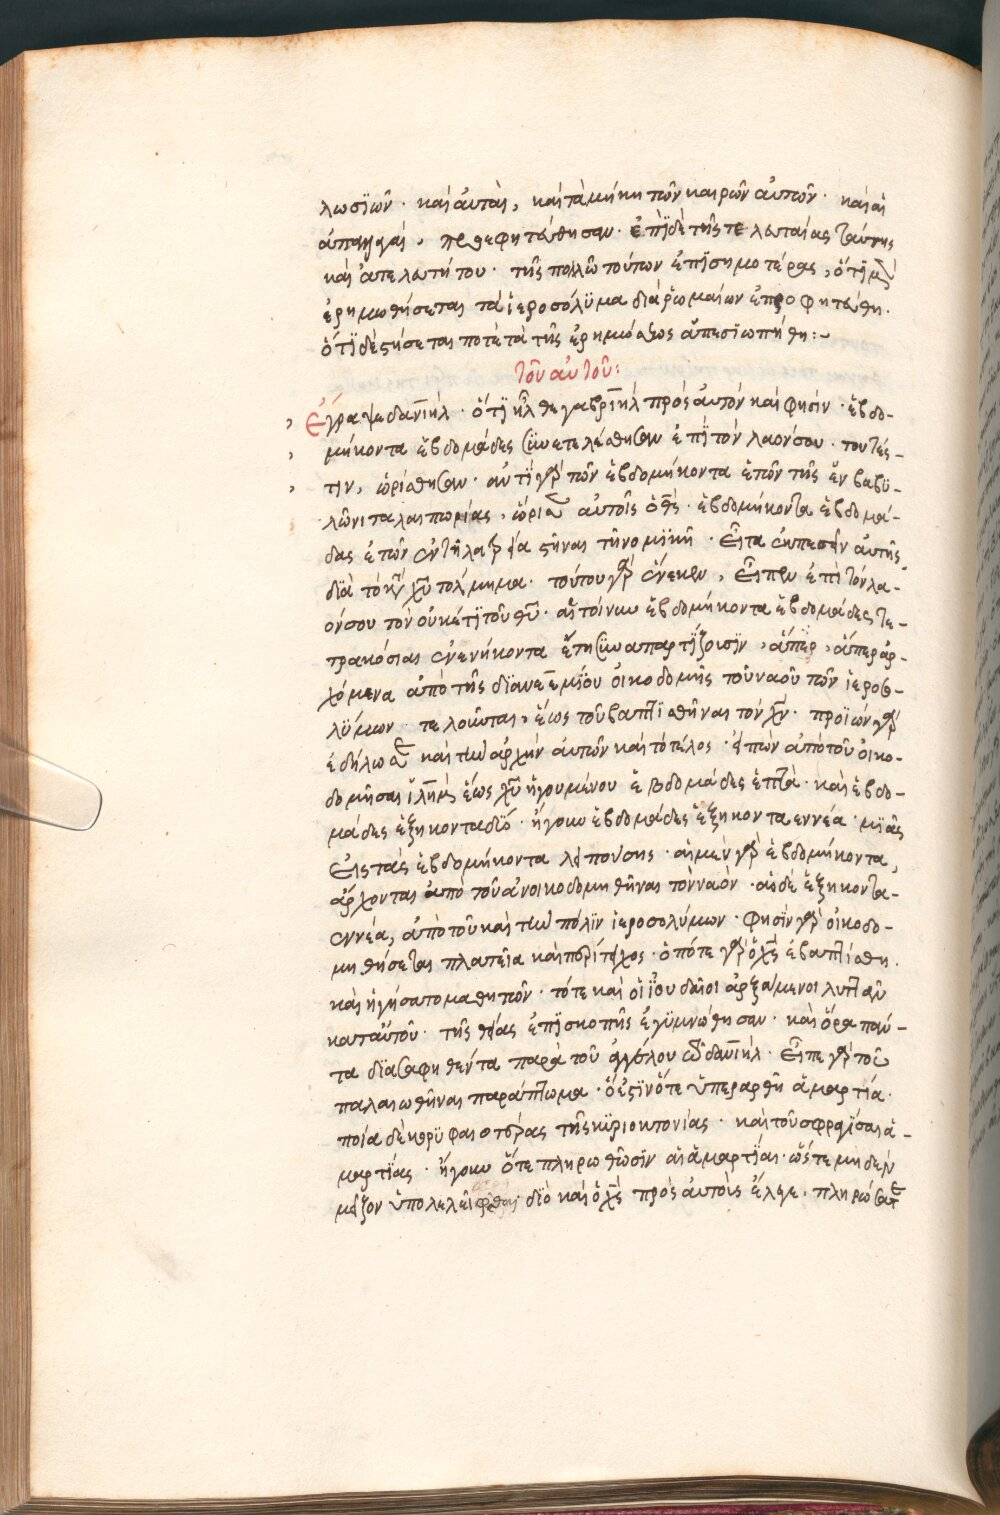 λωσϊῶν · καὶ ἀυταὶ, καὶ τὰ μήκη τῶν καιρῶν ἀυτῶν · καὶ αἱ
ἀπαγωγαὶ, προεφητεύθησαν · ἐπῒ δὲ τῆς τελευταίας ταύτης
καὶ ἀτελευτήτου · τῆς πολλῶ τούτων ἐπϊσημοτέρας, ὅτϊ μὲν
ἐρημωθήσεται τὰ ἱεροσόλϋμα διὰ ῥωμαίων ἐπροφητεύθη ·
ὅτϊ δὲ στήσεταί ποτε τὰ τῆς ἐρημώσεως ἀπεσϊωπήθη :-
τοῦ αυτοῦ:
Εγραψε δανϊὴλ · ὅτϊ ἦλθε γαβρϊὴλ πρὸς ἀυτὸν καὶ φησὶν · ἑβδο-
μήκοντα ἑβδομάδες συνετελέσθησαν ἐπῒ τὸν λαόν σου · τουτέσ-
τιν, ὡρίσθησαν · αντῒ γὰρ τῶν ἑβδομήκοντα ἐτῶν τῆς ἐν βαβϋ-
λῶνι ταλαιπωρίας, ὥρισεν αὐτοῖς ὁ θς · ἑβδομήκοντα ἑβδομά-
δας ἐτῶν ἐντῆ
διὰ τὸ κατὰ χυ τόλμημα · τούτου γὰρ ἕνεκεν, εἶπεν ἐπὶ τὸν λα-
όν σου τὸν οὐκέτϊ τοῦ θυ · αἵ τοίνυν ἑβδομήκοντα ἑβδομάδες τε-
τρακόσια ἐνενήκοντα ἔτη συναπαρτϊζουσϊν, ἅπερ, ἅπερ ἀρ-
χόμενα ἀπὸ τῆς δϊανεεμίου οἰκοδομῆς τοῦ ναοῦ τῶν ἱεροσο-
λύμων · τελοῦται, ἕως τοῦ βαπτϊσθῆναι τὸν χν · προϊὼν γὰρ
ἐδήλωσε καὶ τὴν ἀρχὴν ἀυτῶν καὶ τὸ τέλος · εἰπὼν ἀπὸ τοῦ οἰκο-
δομῆσαι ϊλημ ἕως χυ ἡγουμένου ἑβδομάδες ἑπτὰ · καὶ ἑβδο-
μάδες ἑξηκονταδύο · ἤγουν ἑβδομάδες ἑξήκοντα εννέα · μϊᾶς
εἰς τὰς ἑβδομήκοντα λειπούσης · αἱ μὲν γὰρ ἑβδομήκοντα,
ἄρχονται ἀπὸ τοῦ ἀνοικοδομηθῆναι τὸν ναὸν · αἱ δὲ ἑξηκοντα-
εννέα, ἀπὸ τοῦ καὶ τὴν πόλϊν ἱεροσολύμων · φησὶν γὰρ οἰκοδο-
μηθήσεται πλατεῖα καὶ περίτειχος · ὁπότε γὰρ ὁ χς ἐβαπτίσθη ·
καὶ ἡγήσατο μαθητῶν · τότε καὶ οἱ ϊουδαῖοι ἀρξάμενοι λυττᾶν
κατ αὐτοῦ · τῆς θείας ἐπϊσκοπῆς ἐγϋμνώθησαν · καὶ ὅρα παν-
τα δϊασαφηθέντα παρὰ τοῦ ἀγγέλου τῶ δανϊὴλ · εἶπε γὰρ τοῦ
παλαιωθῆναι παράπτωμα · ὅ ἐστϊν ὅτε ὑπεραρθῆ ἁμαρτία ·
ποία δὲ κορϋφαιοτέρας τῆς κϋριοκτονίας · καὶ τοῦ σφραγίσαι ἁ-
μαρτίας · ἤγουν ὅτε πληρωθῶσϊν αἱ ἁμαρτϊαι · ὥστε μηδὲν
μεῖζον ὑπολελεῖφθαι διὸ καὶ ὁ χς πρὸς ἀυτοὺς ἔλεγε · πληρώσατε